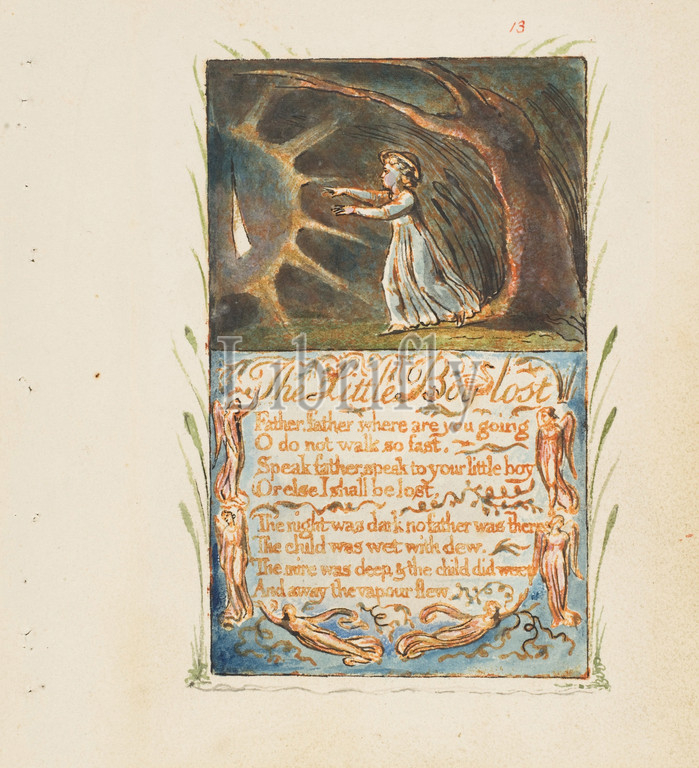 13
The Little Boy lost
Father, father, where are you going
O do not walk so fast.
Speak father, speak to your little boy
Or else I shall be lost,
The night was dark no father was there
The child was wet with dew.
The mire was deep, & the child did weep
And away the vapour flew
Librufly